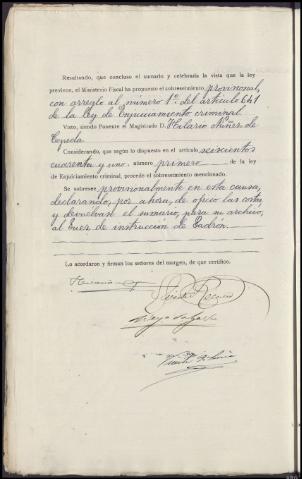 Resultando, que concluso el sumario y celebrada la vista que la ley
previene, el Ministerio Fiscal ha propuesto el sobreseimiento provisional,
con arreglo al número 1º del artículo 641
de la Ley de Enjuiciamiento criminal.
Visto, siendo Ponente el Magistrado D. Hilario Núñez de
Cepeda
Considerando, que según lo dispuesto en el artículo seiscientos
cuarenta y uno, número primero de la ley
de Enjuiciamiento criminal, procede el sobreseimiento mencionado.
Se sobresee provisionalmente en esta causa,
declarando, por ahora, de oficio las costas
y devuélvase el sumario, para su archivo,
al Juez de instrucción de Padrón.
Lo acordaron y firman los señores del margen, de que certifico.